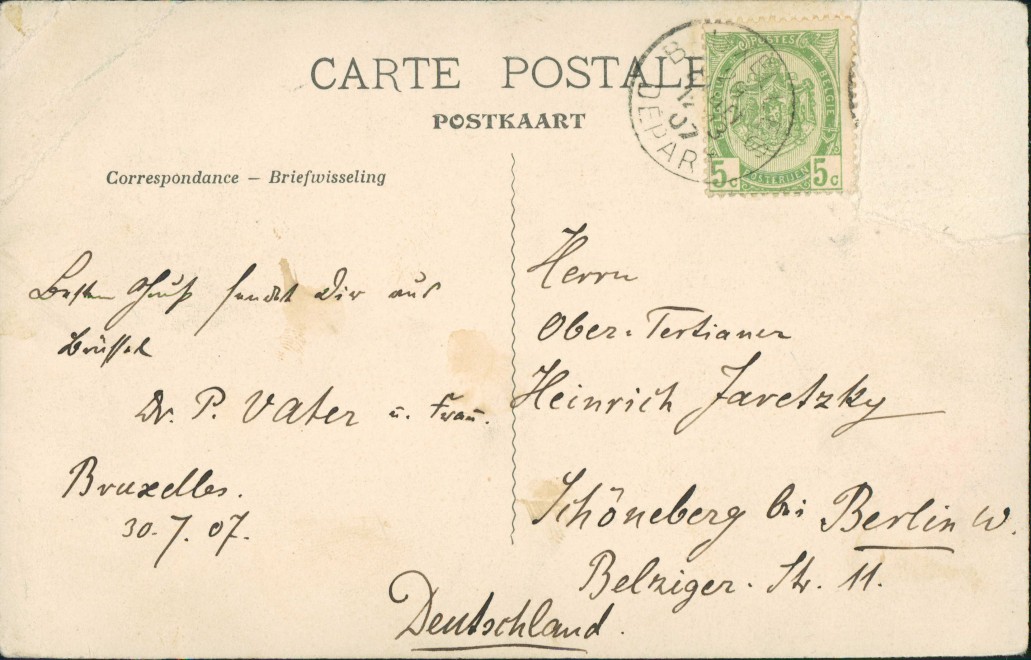 CARTE POSTALE
POSTKAART
Correspondance – Briefwisseling
POSTES BELGIE
5c 5c
DEPART
07
Besten Gruß sendet Dir aus
Brüssel
Dr. P. Vater u. Frau.
Bruxelles.
30.7.07.
Herrn
Ober-Tertianer
Heinrich Jaretzky
Schöneberg bei Berlin W.
Belziger. Str. 11.
Deutschland.